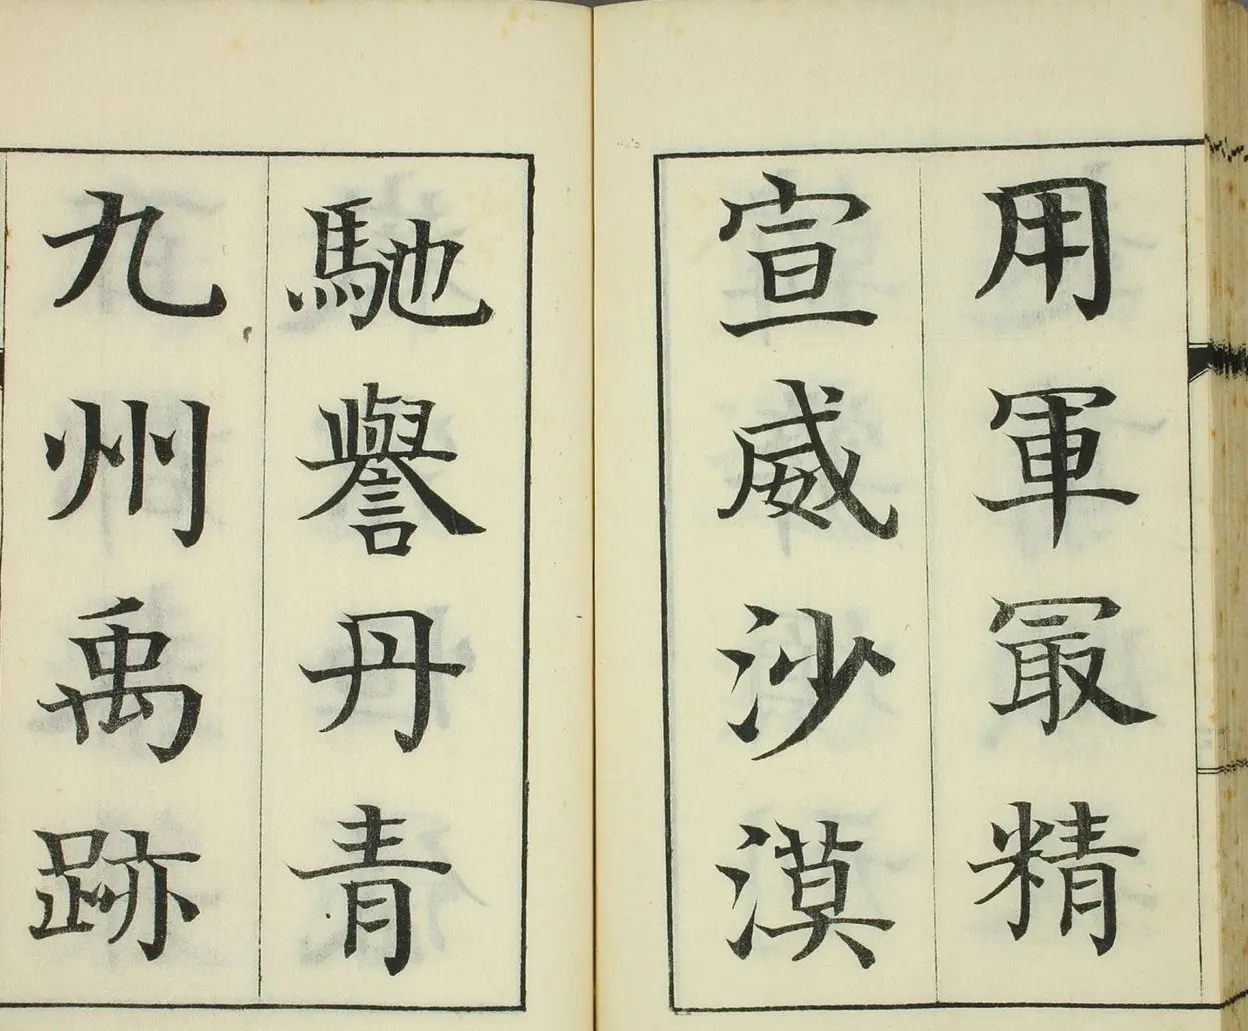 用軍冣精
宣威沙漠
馳譽丹青
九州禹跡